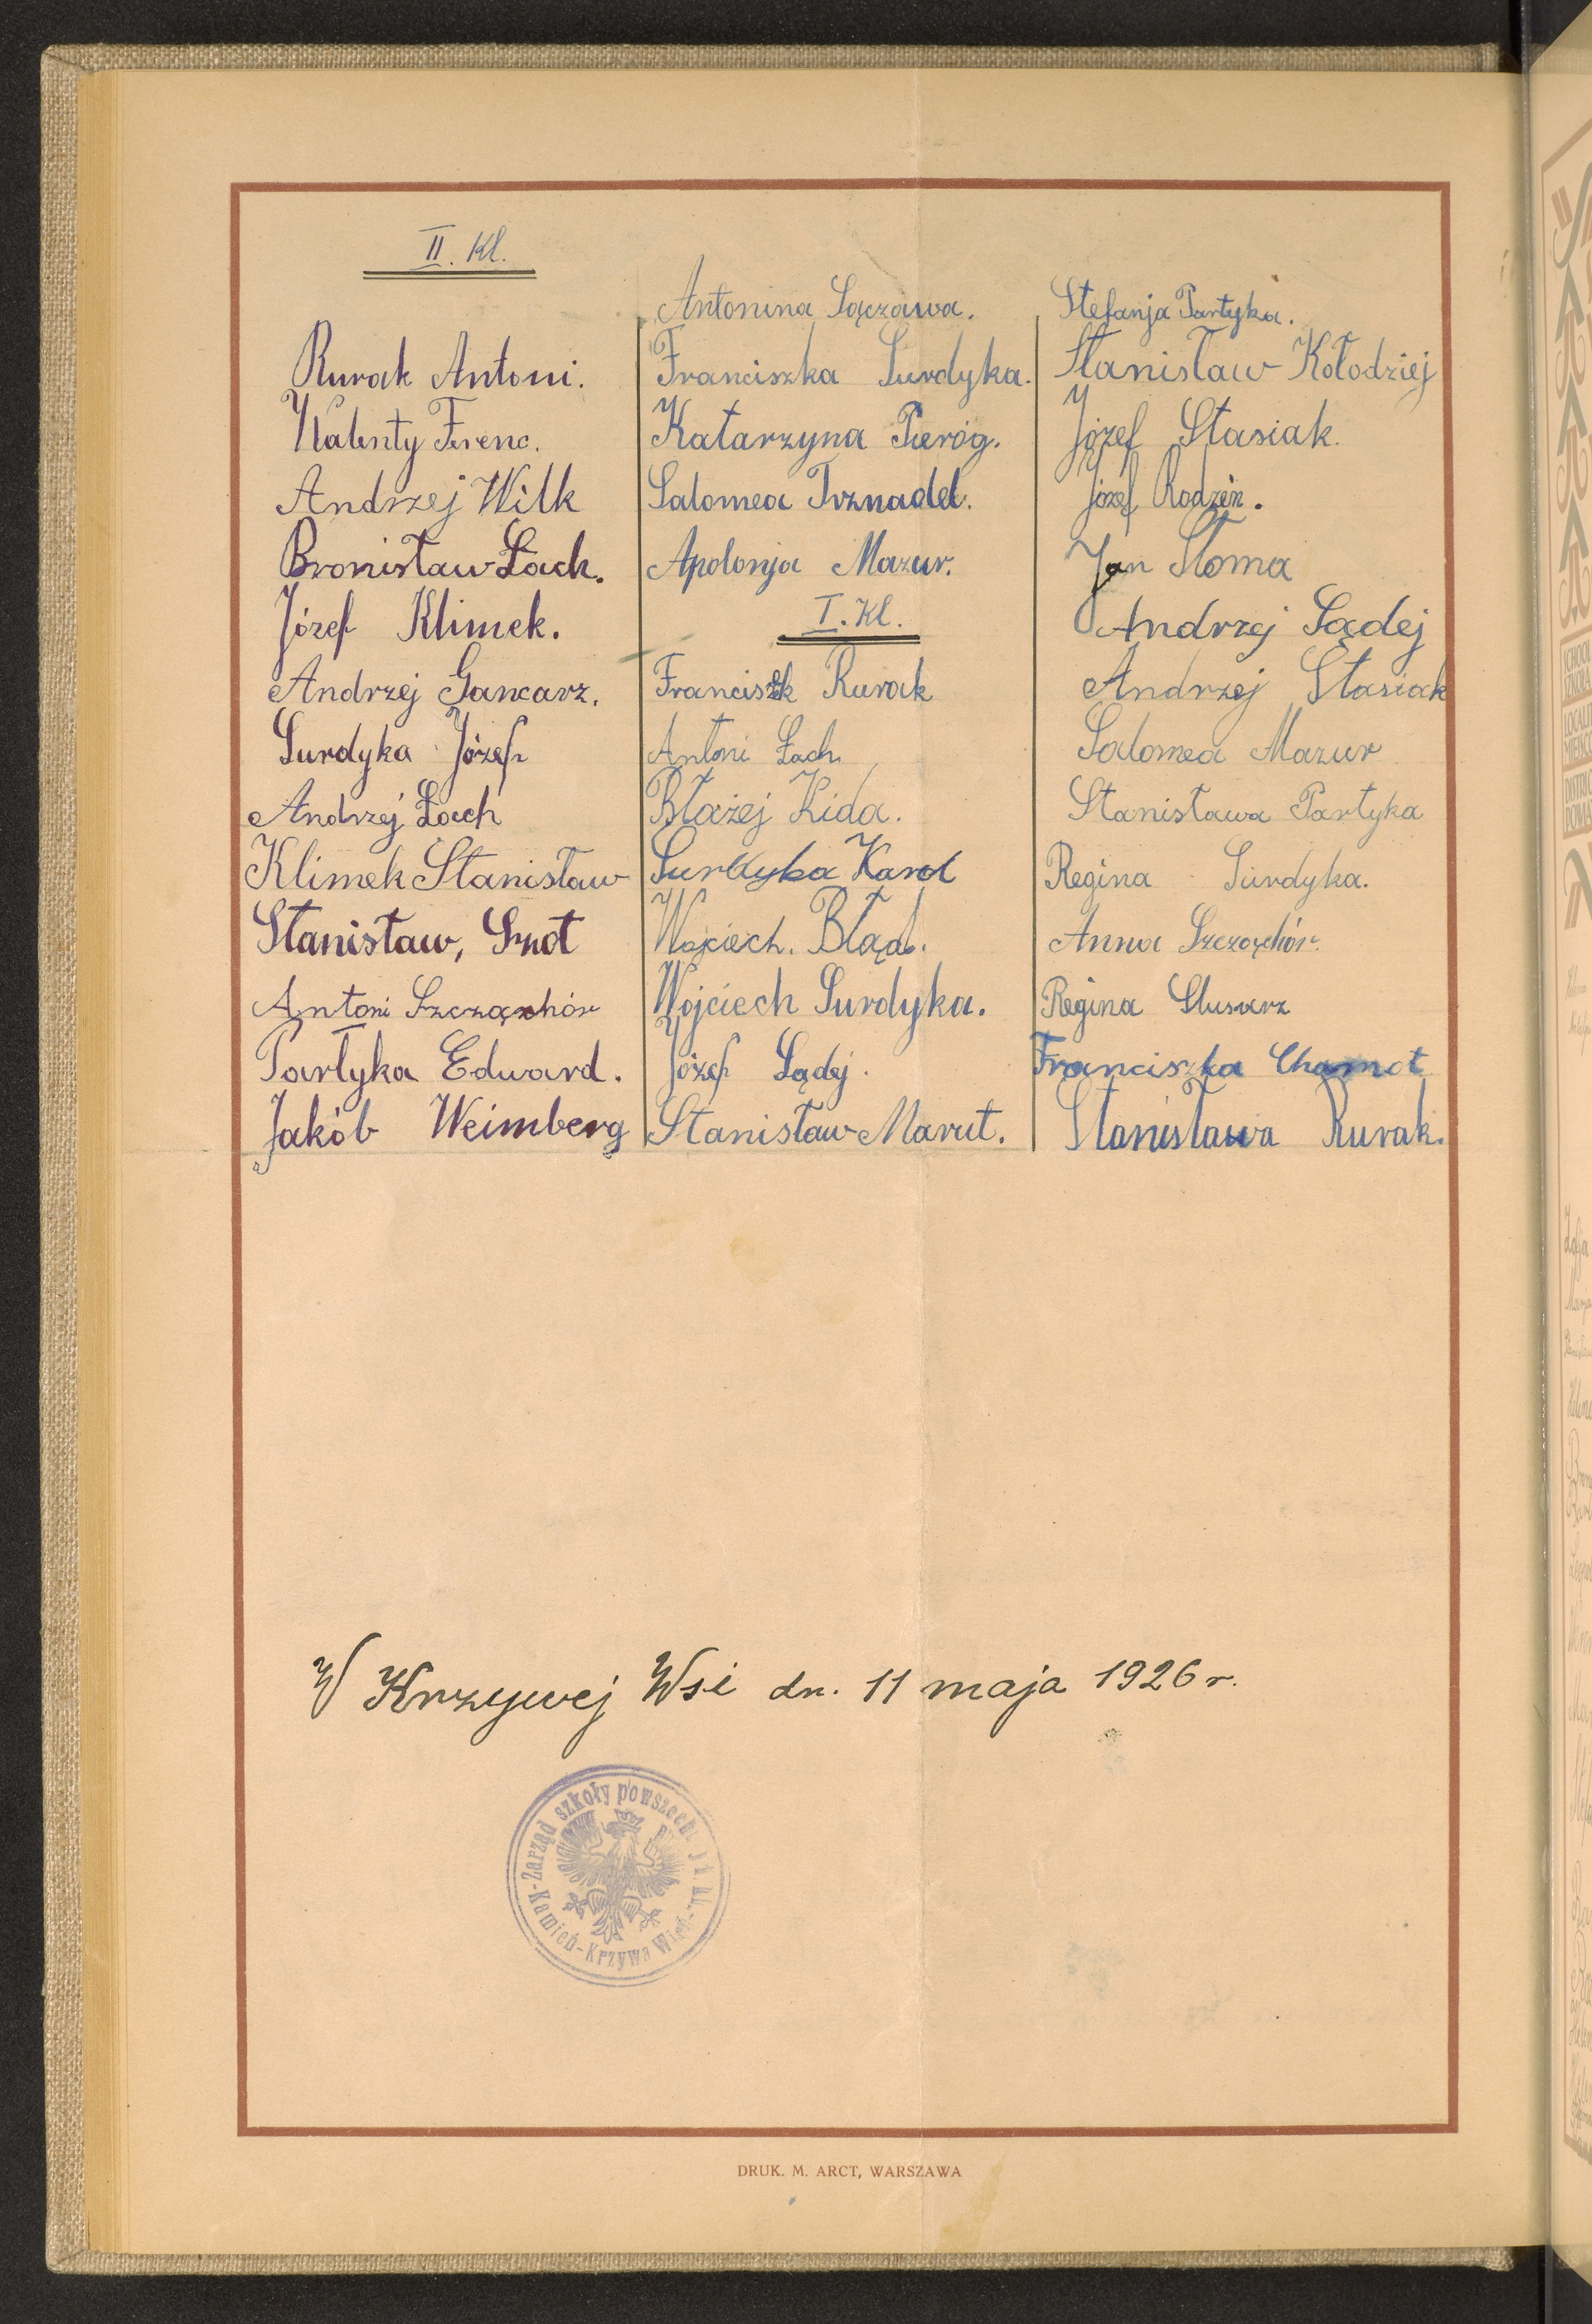 II. Kl.
Rurak Antoni.
Walenty Ferenc.
Andrzej Wilk
Bronisław Łach.
Józef Klimek.
Andrzej Gancarz.
Surdyka Józef
Andrzej Łach
Klimek Stanisław
Stanisław, Sznot
Antoni Szczęchór
Partyka Edward.
Jakób Weimberg
Antonina Sączawa.
Franciszka Surdyka.
Katarzyna Pieróg.
Salomea Trznadel.
Apolonja Mazur.
I. Kl.
Franciszek Rurak
Antoni Łach
Błażej Kida.
Surdyka Karol
Wojciech. Błąd.
Wojciech Surdyka.
Józef Sądej.
Stanisław Marut.
Stefanja Partyka.
Stanisław Kołodziej
Józef Stasiak.
Józef Rodzeń.
Jan Słoma
Andrzej Sądej
Andrzej Stasiak
Salomea Mazur
Stanisława Partyka
Regina Surdyka.
Anna Szczęchór.
Regina Slusarz
Franciszka Chamot
Stanisława Rurak.
W Krzywej Wsi dn. 11 maja 1926 r.
Zarząd szkoły powszech. kl.
Kamień-Krzywa Wieś
DRUK. M. ARCT, WARSZAWA